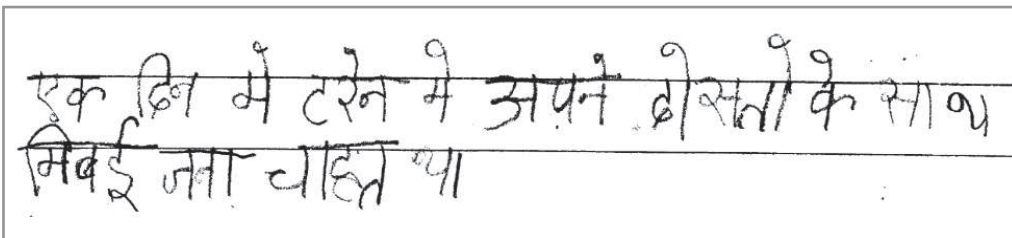 एक दिन मे टरेन मे अपने दोसतो के साथ
मिबई जना चाहत था